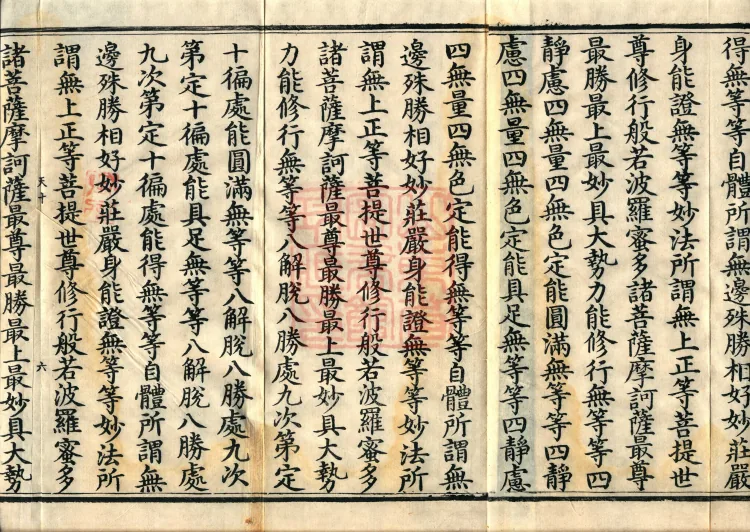 得無等等自體所謂無邊殊勝相好妙莊嚴
身能證無等等妙法所謂無上正等菩提世
尊修行般若波羅蜜多諸菩薩摩訶薩最尊
最勝最上最妙具大勢力能修行無等等四
靜慮四無量四無色定能圓滿無等等四靜
慮四無量四無色定能具足無等等四靜慮
四無量四無色定能得無等等自體所謂無
邊殊勝相好妙莊嚴身能證無等等妙法所
謂無上正等菩提世尊修行般若波羅蜜多
諸菩薩摩訶薩最尊最勝最上最妙具大勢
力能修行無等等八解脫八勝處九次第定
十徧處能圓滿無等等八解脫八勝處九次
第定十徧處能具足無等等八解脫八勝處
九次第定十徧處能得無等等自體所謂無
邊殊勝相好妙莊嚴身能證無等等妙法所
謂無上正等菩提世尊修行般若波羅蜜多
天十 六
諸菩薩摩訶薩最尊最勝最上最妙具大勢